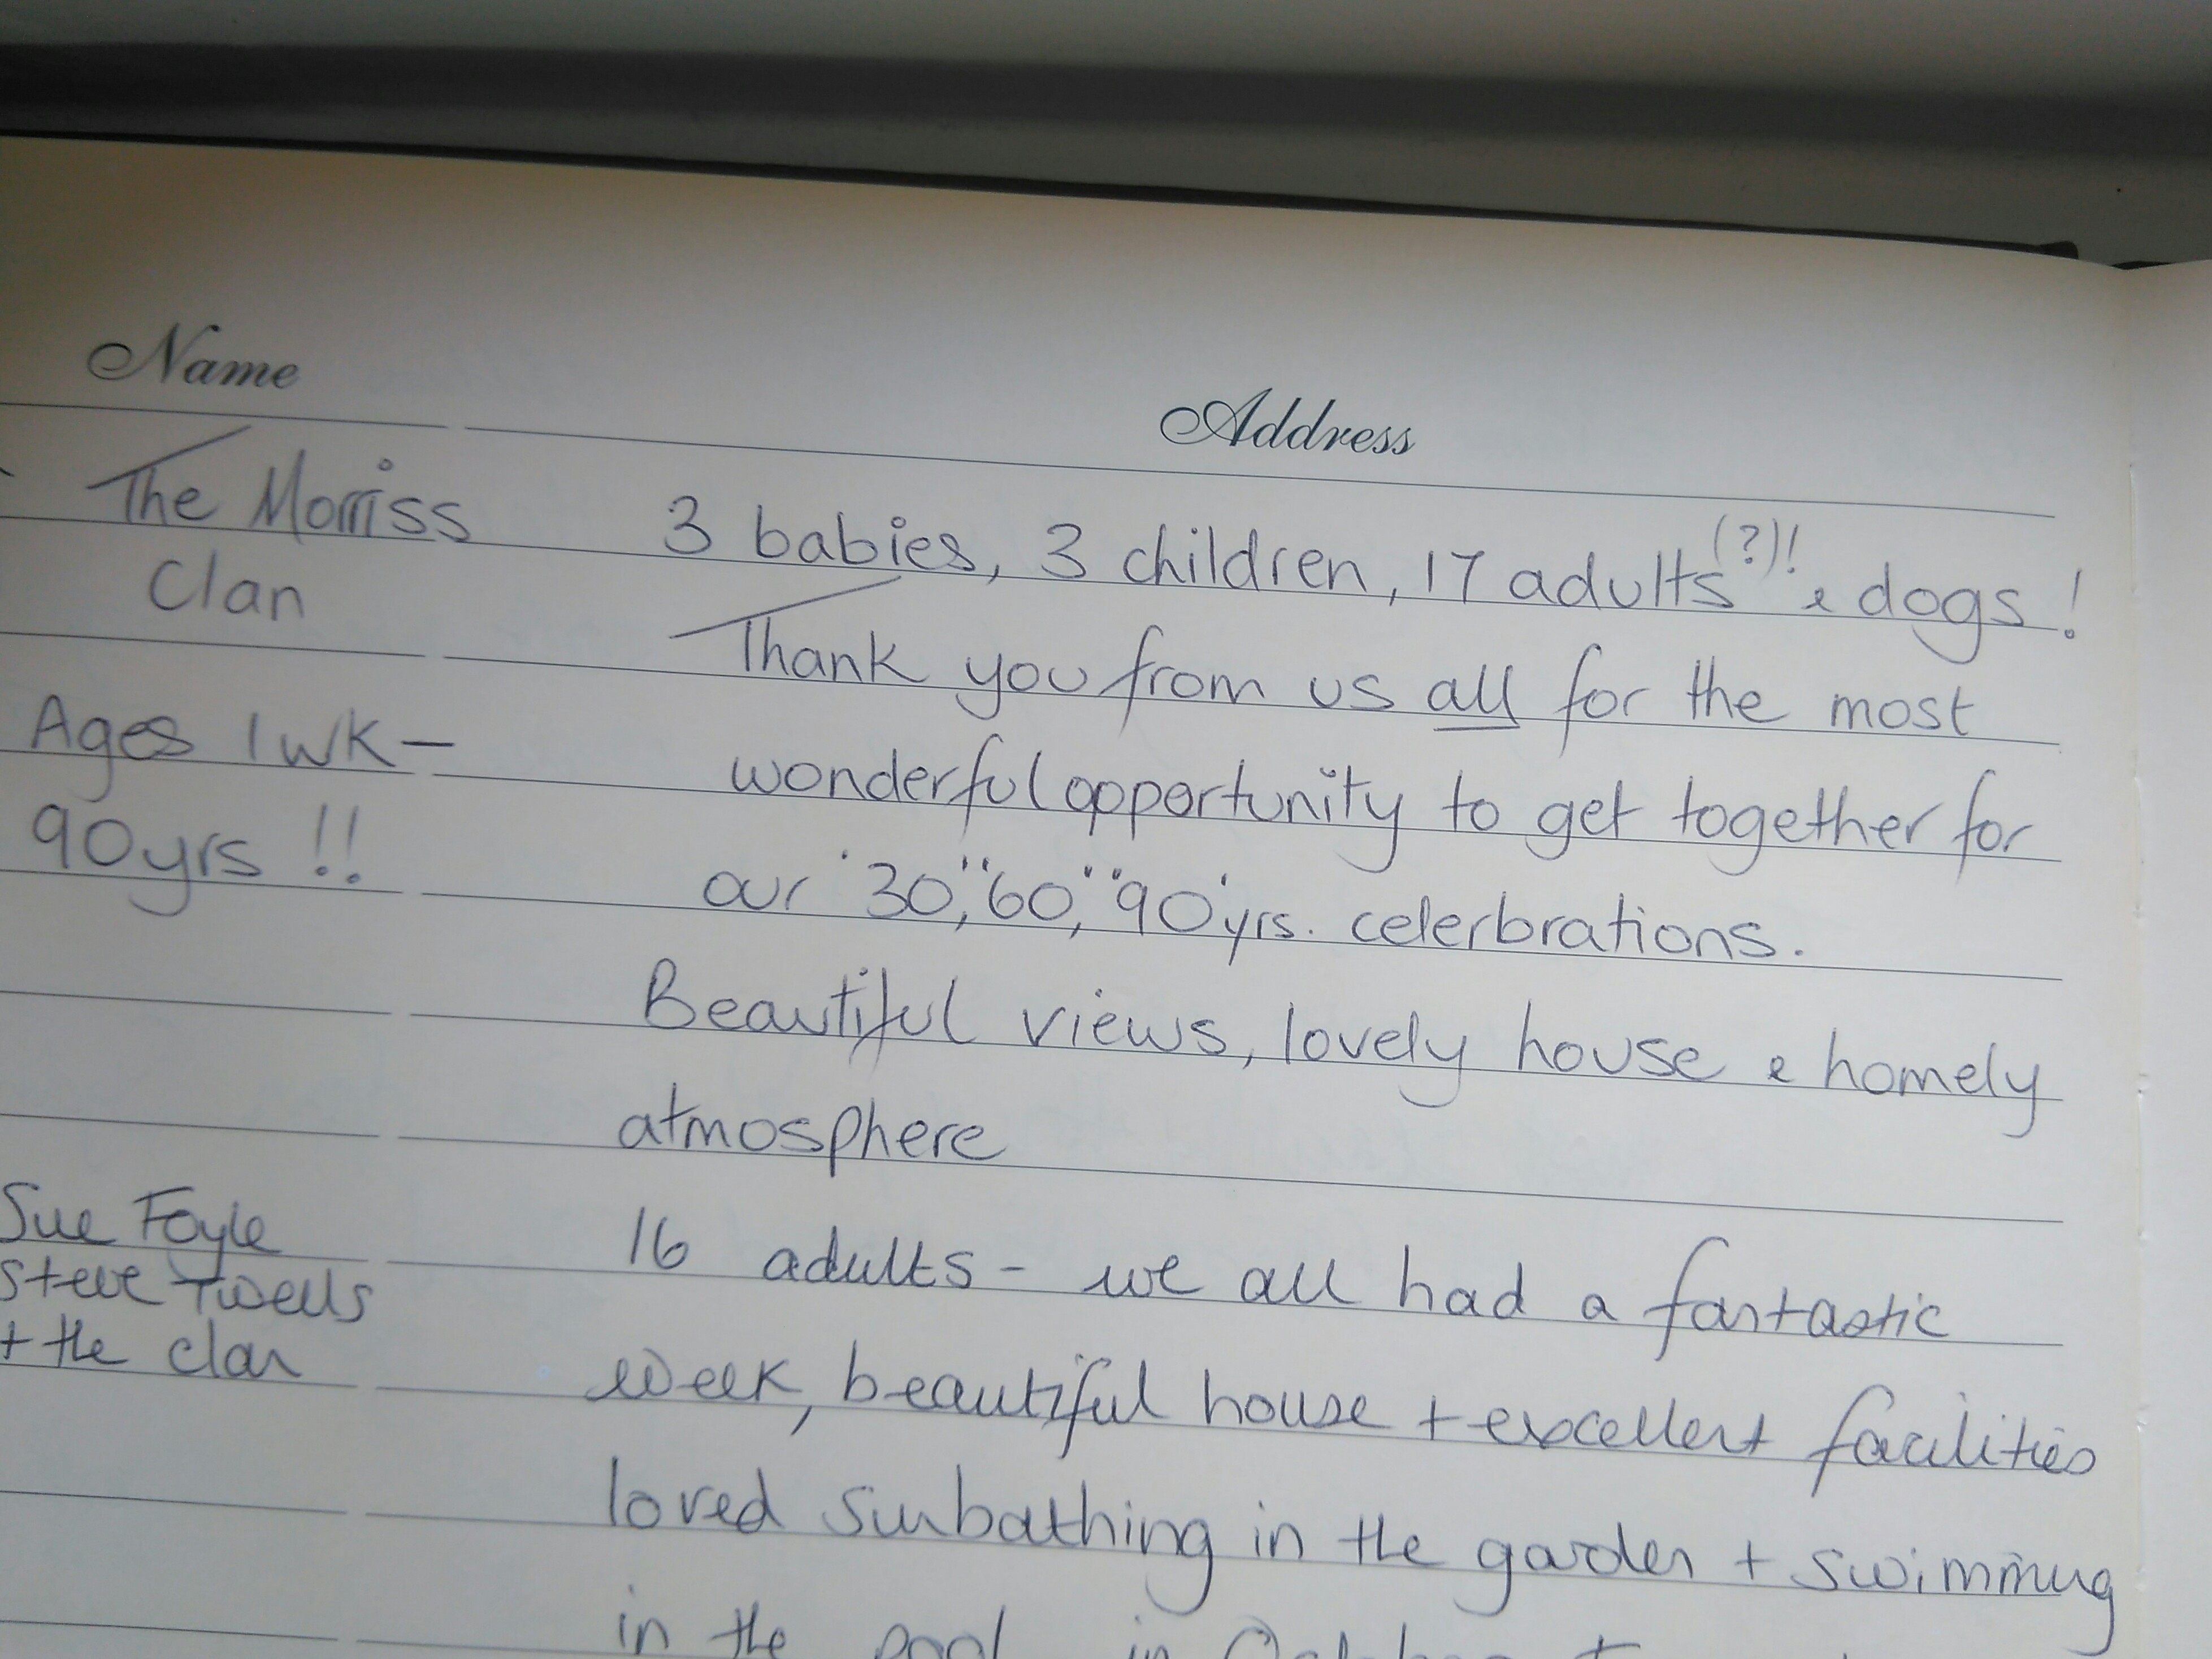 Name
Address
The Morriss 3 babies, 3 children, 17 adults (?)! & dogs!
Clan Thank you from us all for the most
Ages 1 wk - wonderful opportunity to get together for
90yrs !! our '30', '60', '90' yrs. celerbrations.
Beautiful views, lovely house & homely
atmosphere
Sue Foyle 16 adults - we all had a fantastic
Steve Twells
+ the clan week, beautiful house + excellent facilities
loved sunbathing in the garden + swimming
in the pool in October